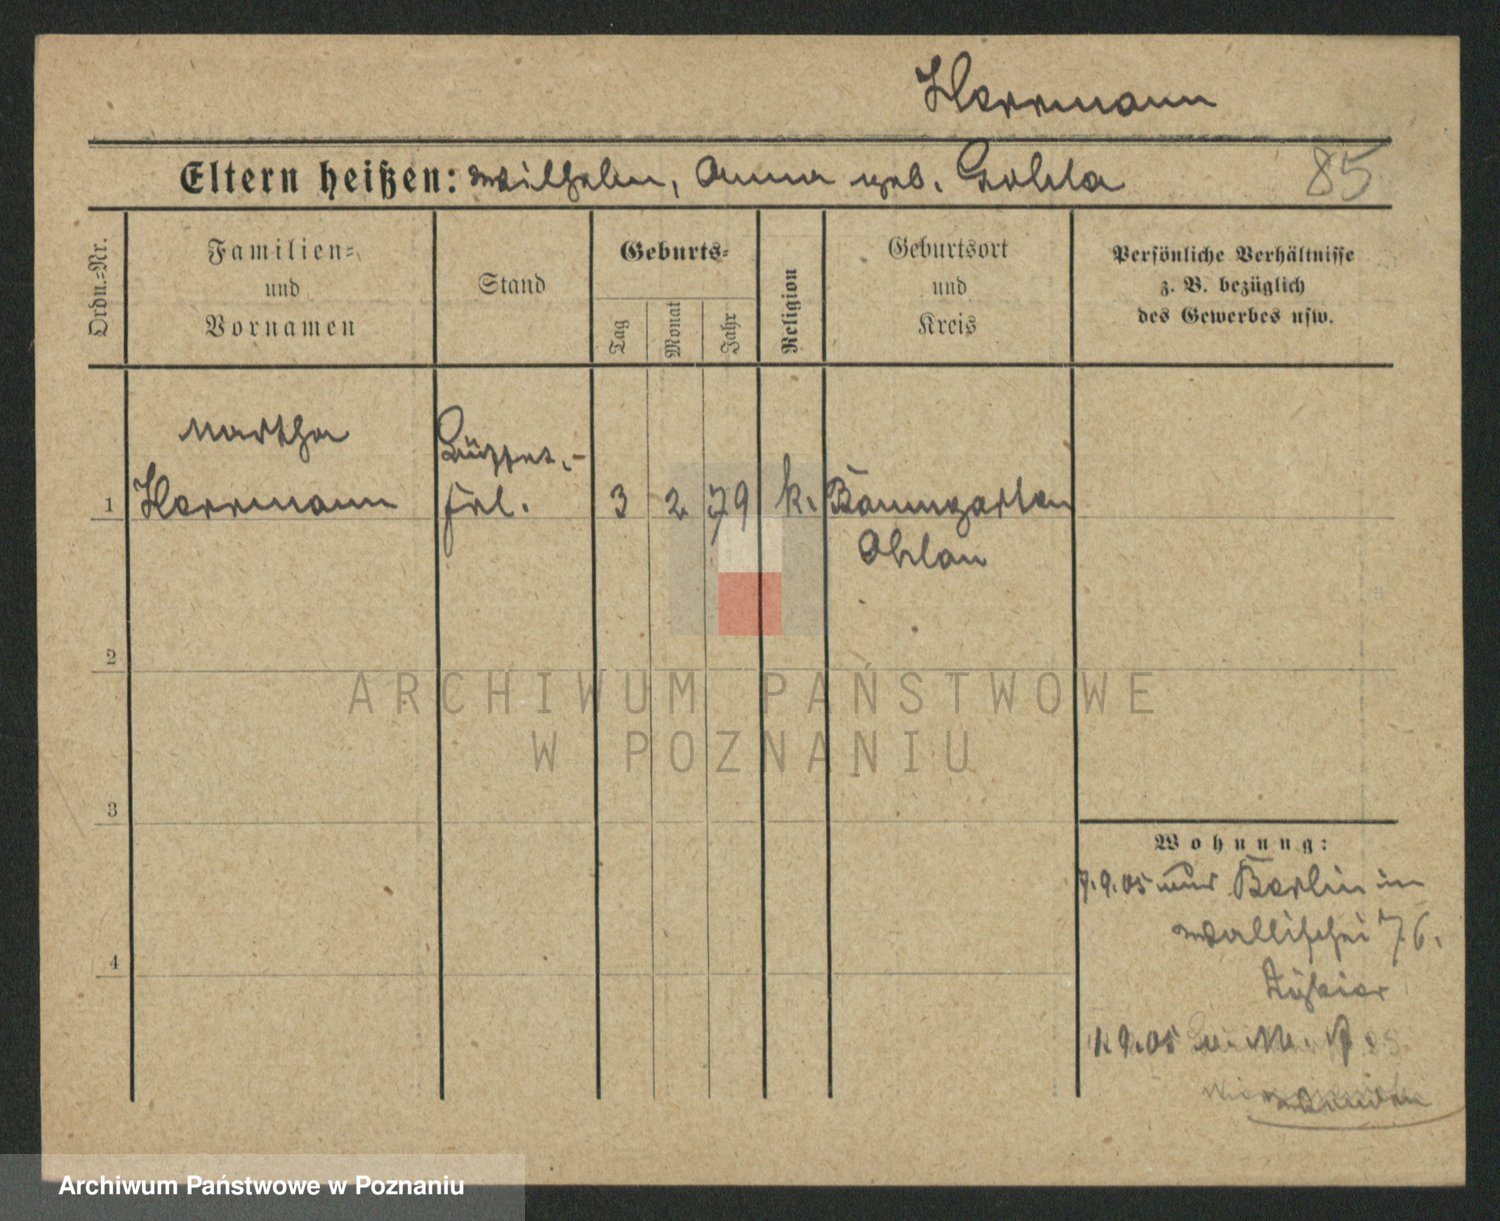 Herrmann
Eltern heißen: Wilhelm, Anna geb.
85
Ordn.=Nr.
Familien=
und
Vornamen
Stand
Geburts=
Tag
Monat
Jahr
Religion
Geburtsort
und
Kreis
Persönliche Verhältnisse
z. B. bezüglich
des Gewerbes usw.
Martha
1 Herrmann
Frl.
3 2 79 k. Baumgarten
Ohlau
2
3
4
Wohnung:
7.9.05 aus Berlin in
Wallischei 76.
9.05
ARCHIWUM PAŃSTWOWE
W POZNANIU
Archiwum Państwowe w Poznaniu